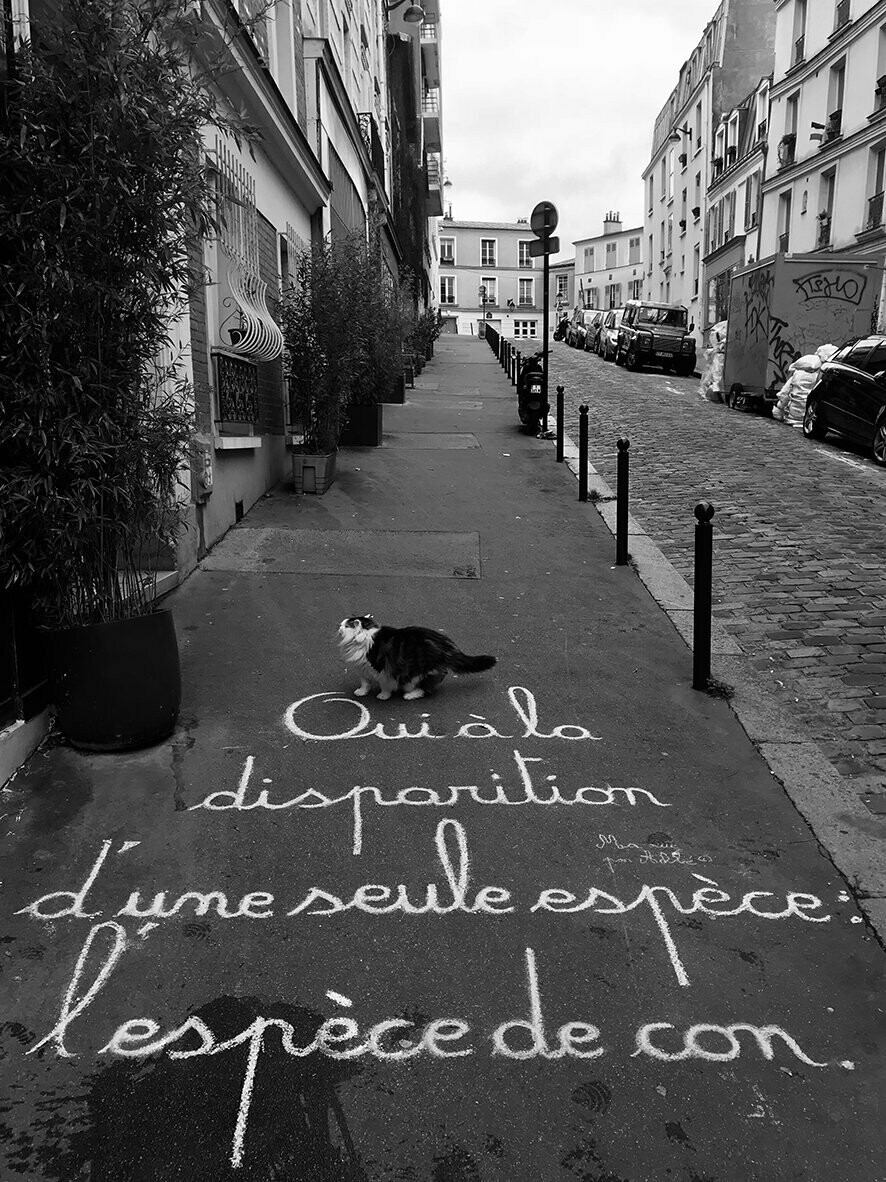 Oui à la
disparition
d'une seule espèce :
l'espèce de con.
Ma rue
par